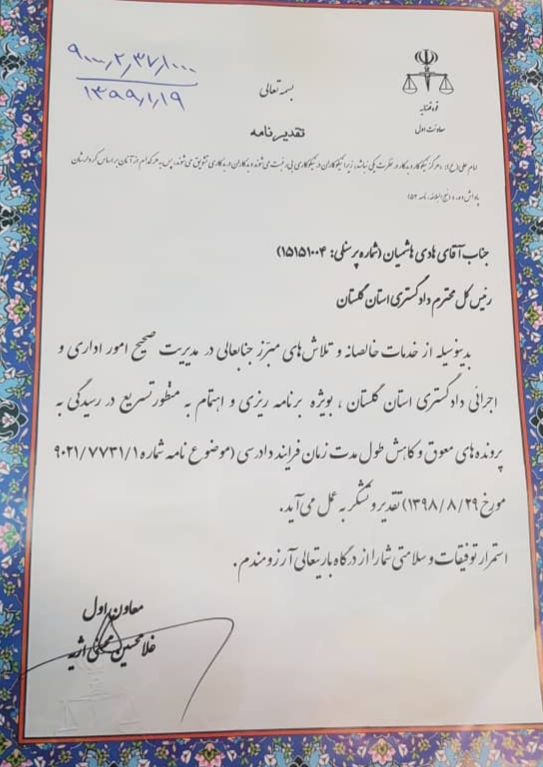 ۹۰۰۰/۲۳۷/۱۰۰۰
۱۳۹۹/۱/۱۹
قوه قضاییه
معاونت اول
بسمه تعالی
تقدیرنامه
امام علی(ع): هرگز نیکوکار و بدکار در نظرت یکی نباشند، زیرا نیکوکاران در نیکوکاری بی رغبت می شوند و بدکاران در بدکاری تشویق می شوند، پس به هر کدام از آنان بر اساس کردارشان
پاداش ده. نهج البلاغه، نامه ۵۳
جناب آقای هادی هاشمیان (شماره پرسنلی: ۱۵۱۵۱۰۰۴)
رئیس کل محترم دادگستری استان گلستان
بدینوسیله از خدمات خالصانه و تلاش های مبرّز جنابعالی در مدیریت صحیح امور اداری و
اجرائی دادگستری استان گلستان ، بویژه برنامه ریزی و اهتمام به منظور تسریع در رسیدگی به
پرونده های معوق و کاهش طول مدت زمان فرایند دادرسی (موضوع نامه شماره ۹۰۲۱/۷۷۳۱/۱
مورخ ۱۳۹۸/۸/۲۹) تقدیر و تشکر به عمل می آید.
استمرار توفیقات و سلامتی شما را از درگاه باریتعالی آرزومندم.
معاون اول
غلامحسین محسنی اژیه